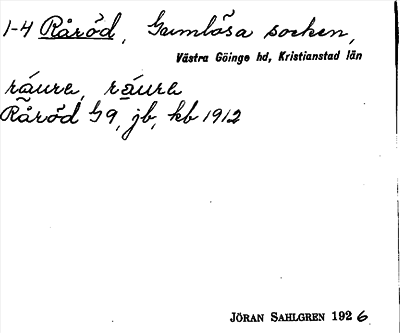 1-4 Råröd, Gumlösa socken,
Västra Göinge hd, Kristianstad län
Råröd 59, jb, kb 1912
JÖRAN SAHLGREN 1926